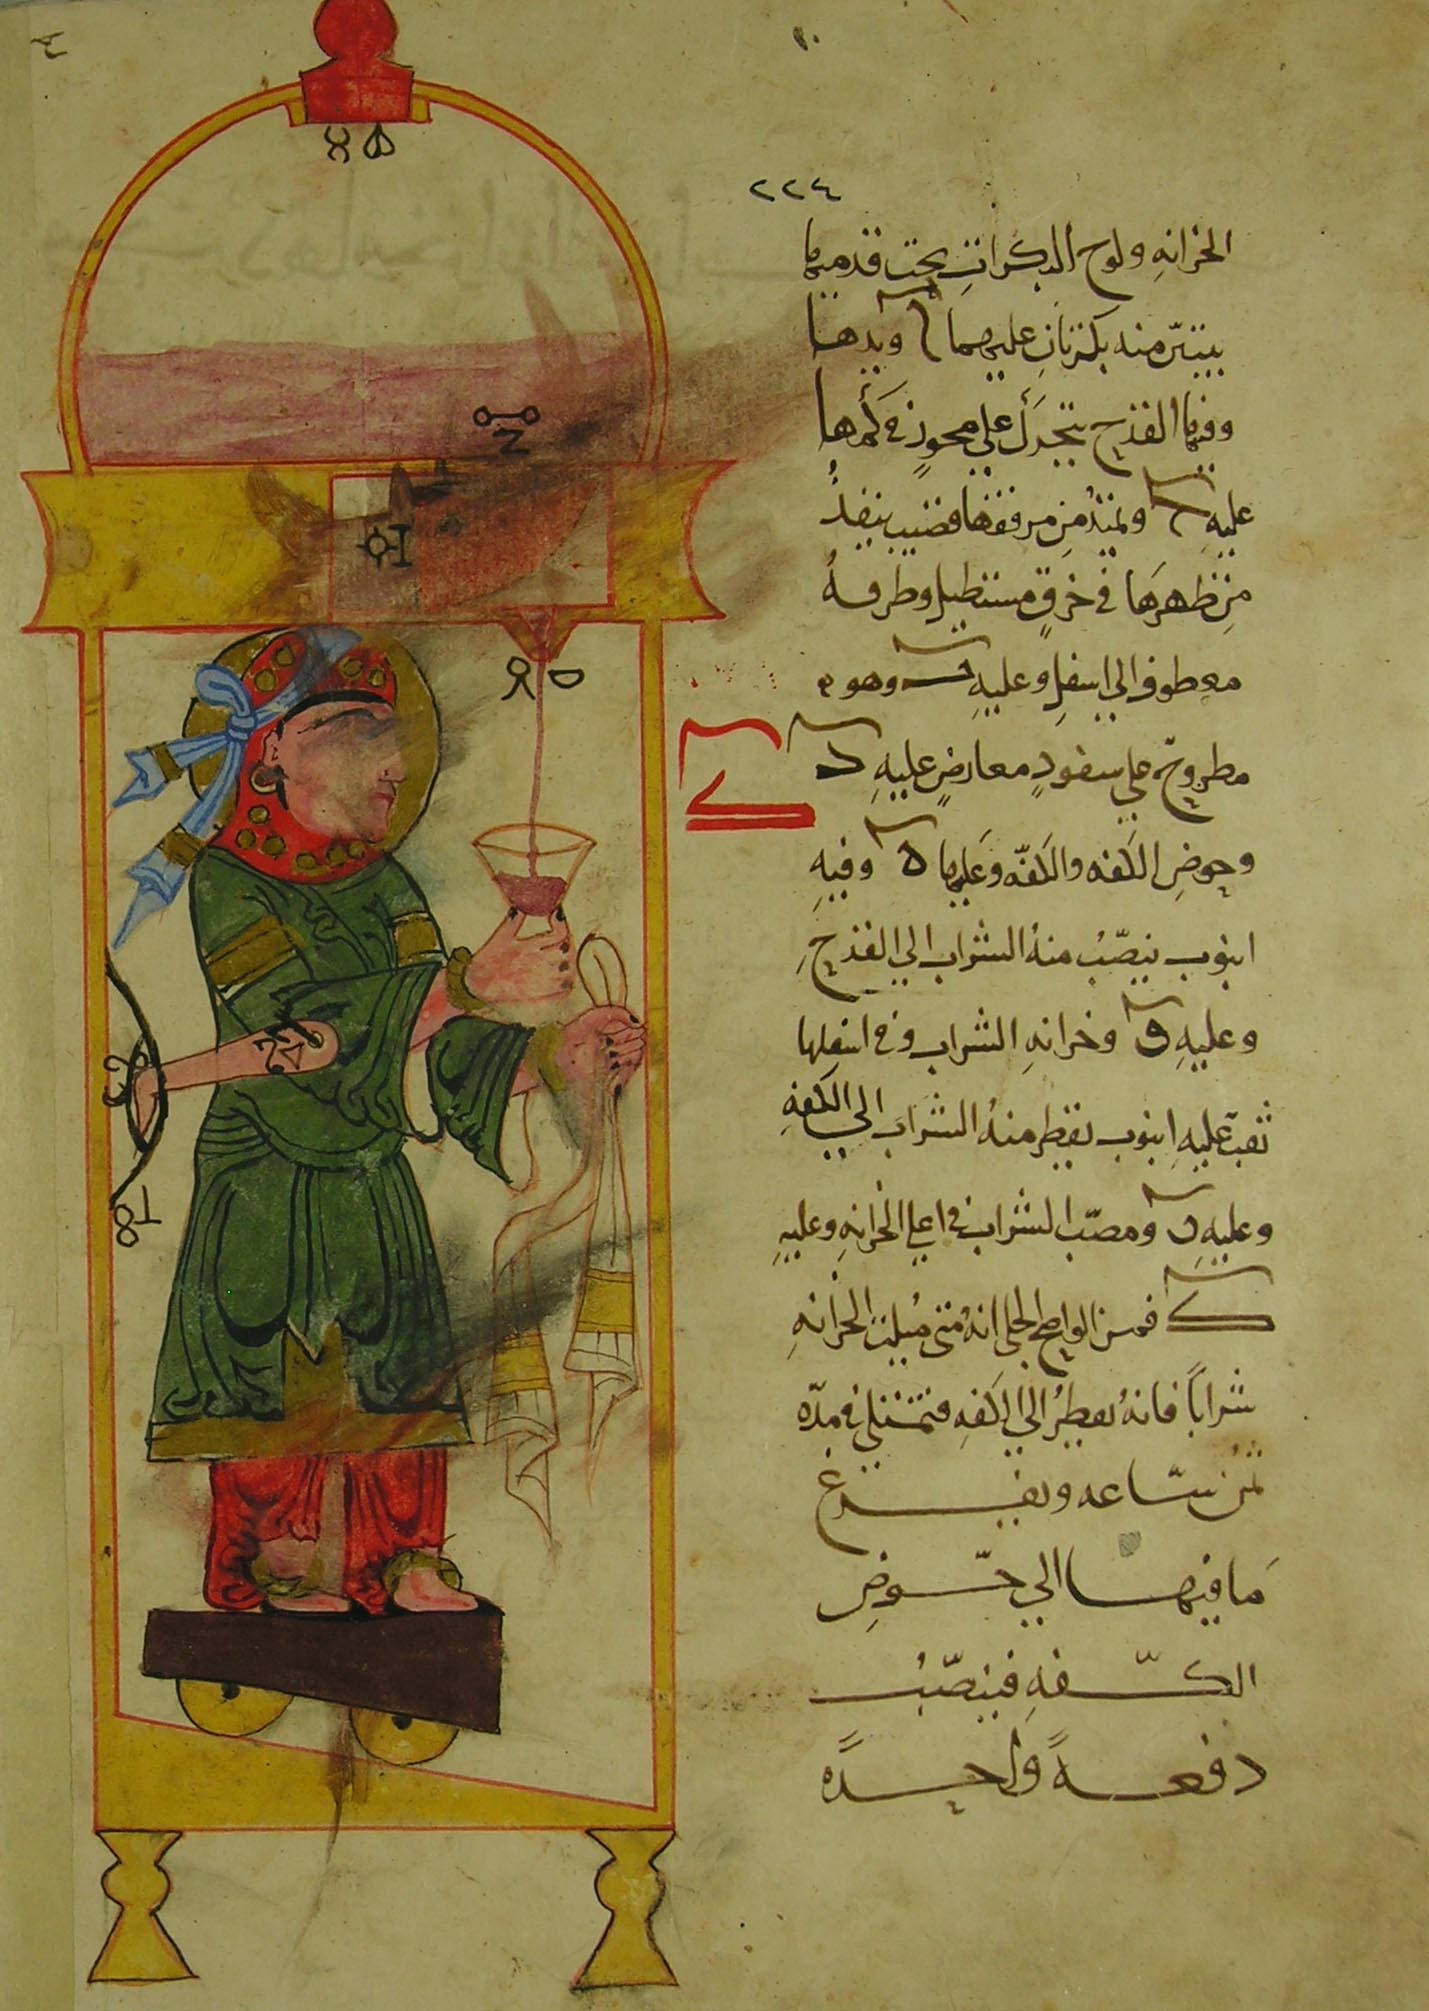 ٢٢٤
الخزانهِ ولوح البكراتِ تحت قدميها
يتبيّن منه بكرتانِ عليهما ا ويدها
وفيها القدح يتحرّك على محورٍ في كمّها
عليهِ ح ويمتدُ مِن مرفقها قضيب ينفذُ
مِن ظهرها في خرقٍ مستطيل وطرفهُ
معطوف الى اسفل وعليهِ وهو
مطروح على سفودٍ معارضٍ عليهِ د
وحوضِ الكفه والكفّه وعليها ه وفيهِ
انبوب ينصّبُ منهُ الشراب الى القدحِ
وعليهِ و وخزانهِ الشراب وفي اسفلها
ثقب عليهِ انبوب يقطر منهُ الشراب الى الكفهِ
وعليهِ ومصبّ الشراب في اعلى الخزانهِ وعليهِ
ك فمن الواضح الجلي انهُ متى مُلئت الخزانهِ
شراباً فانهُ يقطرُ الى الكفهِ فتمتلي في مدّه
ثمُن ساعه ويفرغ
مَا فيها الى حوضِ
الكفّهِ فينصّبُ
دفعهً واحدهً